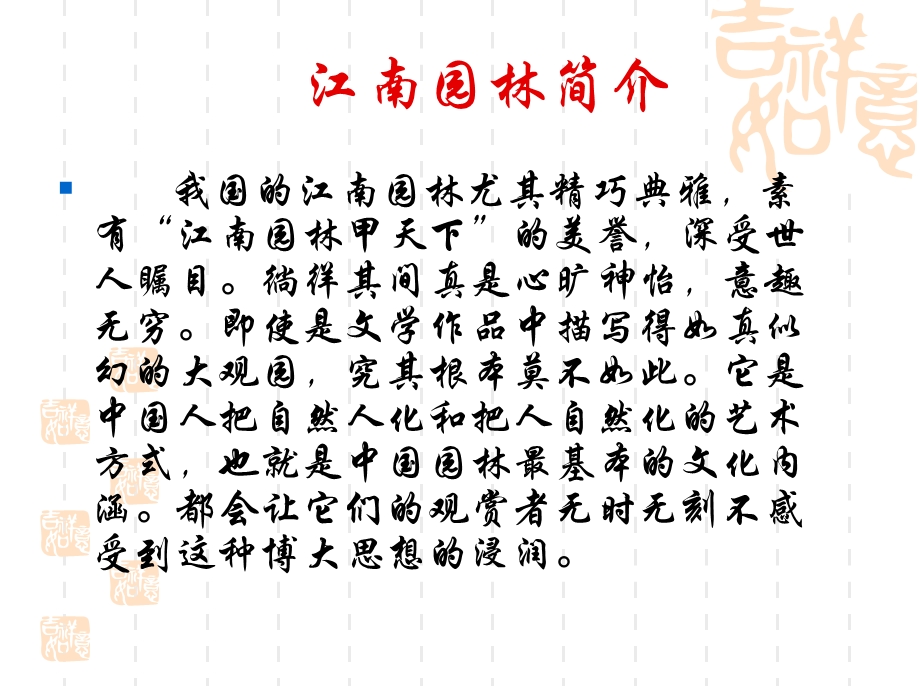 江南园林简介
我国的江南园林尤其精巧典雅，素
有“江南园林甲天下”的美誉，深受世
人瞩目。徜徉其间真是心旷神怡，意趣
无穷。即使是文学作品中描写得如真似
幻的大观园，究其根本莫不如此。它是
中国人把自然人化和把人自然化的艺术
方式，也就是中国园林最基本的文化内
涵。都会让它们的观赏者无时无刻不感
受到这种博大思想的浸润。
吉祥如意
吉祥如意
吉祥如意
吉祥如意
吉祥如意
吉祥如意
吉祥如意